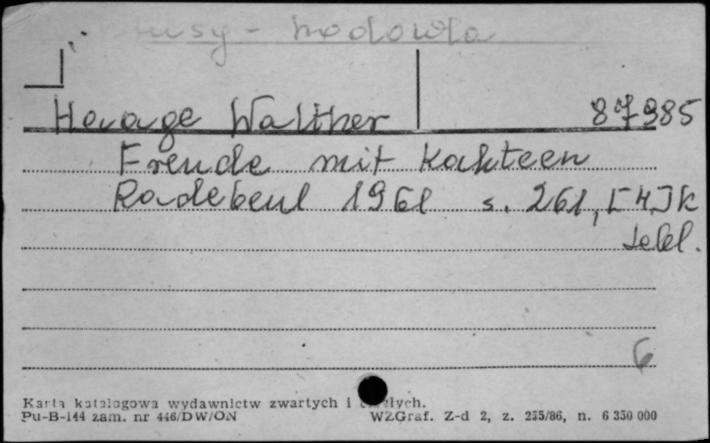 - hodowla
Haage Walther 87985
Freude mit Kakteen
Radebeul 1961 s. 261, [4] k
tabl.
6
Karta katalogowa wydawnictw zwartych i ciągłych.
Pu-B-144 zam. nr 446/DW/ON WZGraf. Z-d 2, z. 255/86, n. 6 350 000